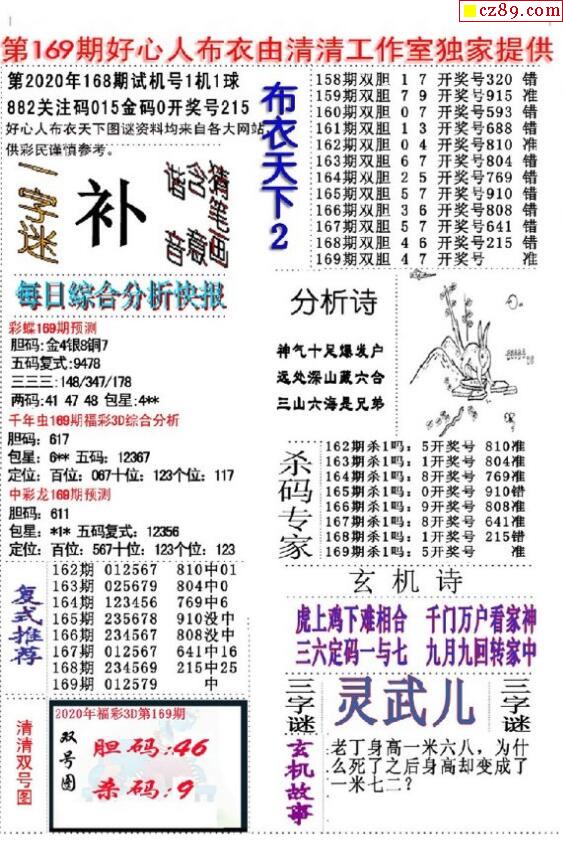 cz89.com
第169期好心人布衣由清清工作室独家提供
第2020年168期试机号1机1球
882关注码015金码0开奖号215
好心人布衣天下图谜资料均来自各大网站
供彩民谨慎参考。
一字迷
补
猪笔画
含意
谐音
每日综合分析快报
彩蝶169期预测
胆码:金4银8铜7
五码复式:9478
三三三:148/347/178
两码:41 47 48 包星:4**
千年虫169期福彩3D综合分析
胆码: 617
包星: 6** 五码: 12367
定位: 百位: 067十位: 123个位: 117
中彩龙169期预测
胆码: 611
包星: *1* 五码复式: 12356
定位: 百位: 567十位: 123个位: 123
复式推荐
162期 012567 810中01
163期 025679 804中0
164期 123456 769中6
165期 235678 910没中
166期 234567 808没中
167期 012567 641中16
168期 234569 215中25
169期 012579 中
清清双号图
2020年福彩3D第169期
双号图
胆码:46
杀码:9
布衣天下2
158期双胆 1 7 开奖号320 错
159期双胆 7 9 开奖号915 准
160期双胆 0 7 开奖号593 错
161期双胆 1 3 开奖号688 错
162期双胆 0 4 开奖号810 准
163期双胆 6 7 开奖号804 错
164期双胆 2 5 开奖号769 错
165期双胆 5 7 开奖号910 错
166期双胆 3 6 开奖号808 错
167期双胆 5 7 开奖号641 错
168期双胆 4 6 开奖号215 错
169期双胆 4 7 开奖号 准
分析诗
神气十足爆发户
远处深山藏六合
三山六海是兄弟
杀码专家
162期杀1吗: 5开奖号 810准
163期杀1吗: 1开奖号 804准
164期杀1吗: 8开奖号 769准
165期杀1吗: 0开奖号 910错
166期杀1吗: 9开奖号 808准
167期杀1吗: 8开奖号 641准
168期杀1吗: 1开奖号 215错
169期杀1吗: 5开奖号 准
玄机诗
虎上鸡下难相合 千门万户看家神
三六定码一与七 九月九回转家中
三字谜
灵武儿
三字谜
玄机故事
老丁身高一米六八，为什
么死了之后身高却变成了
一米七二？